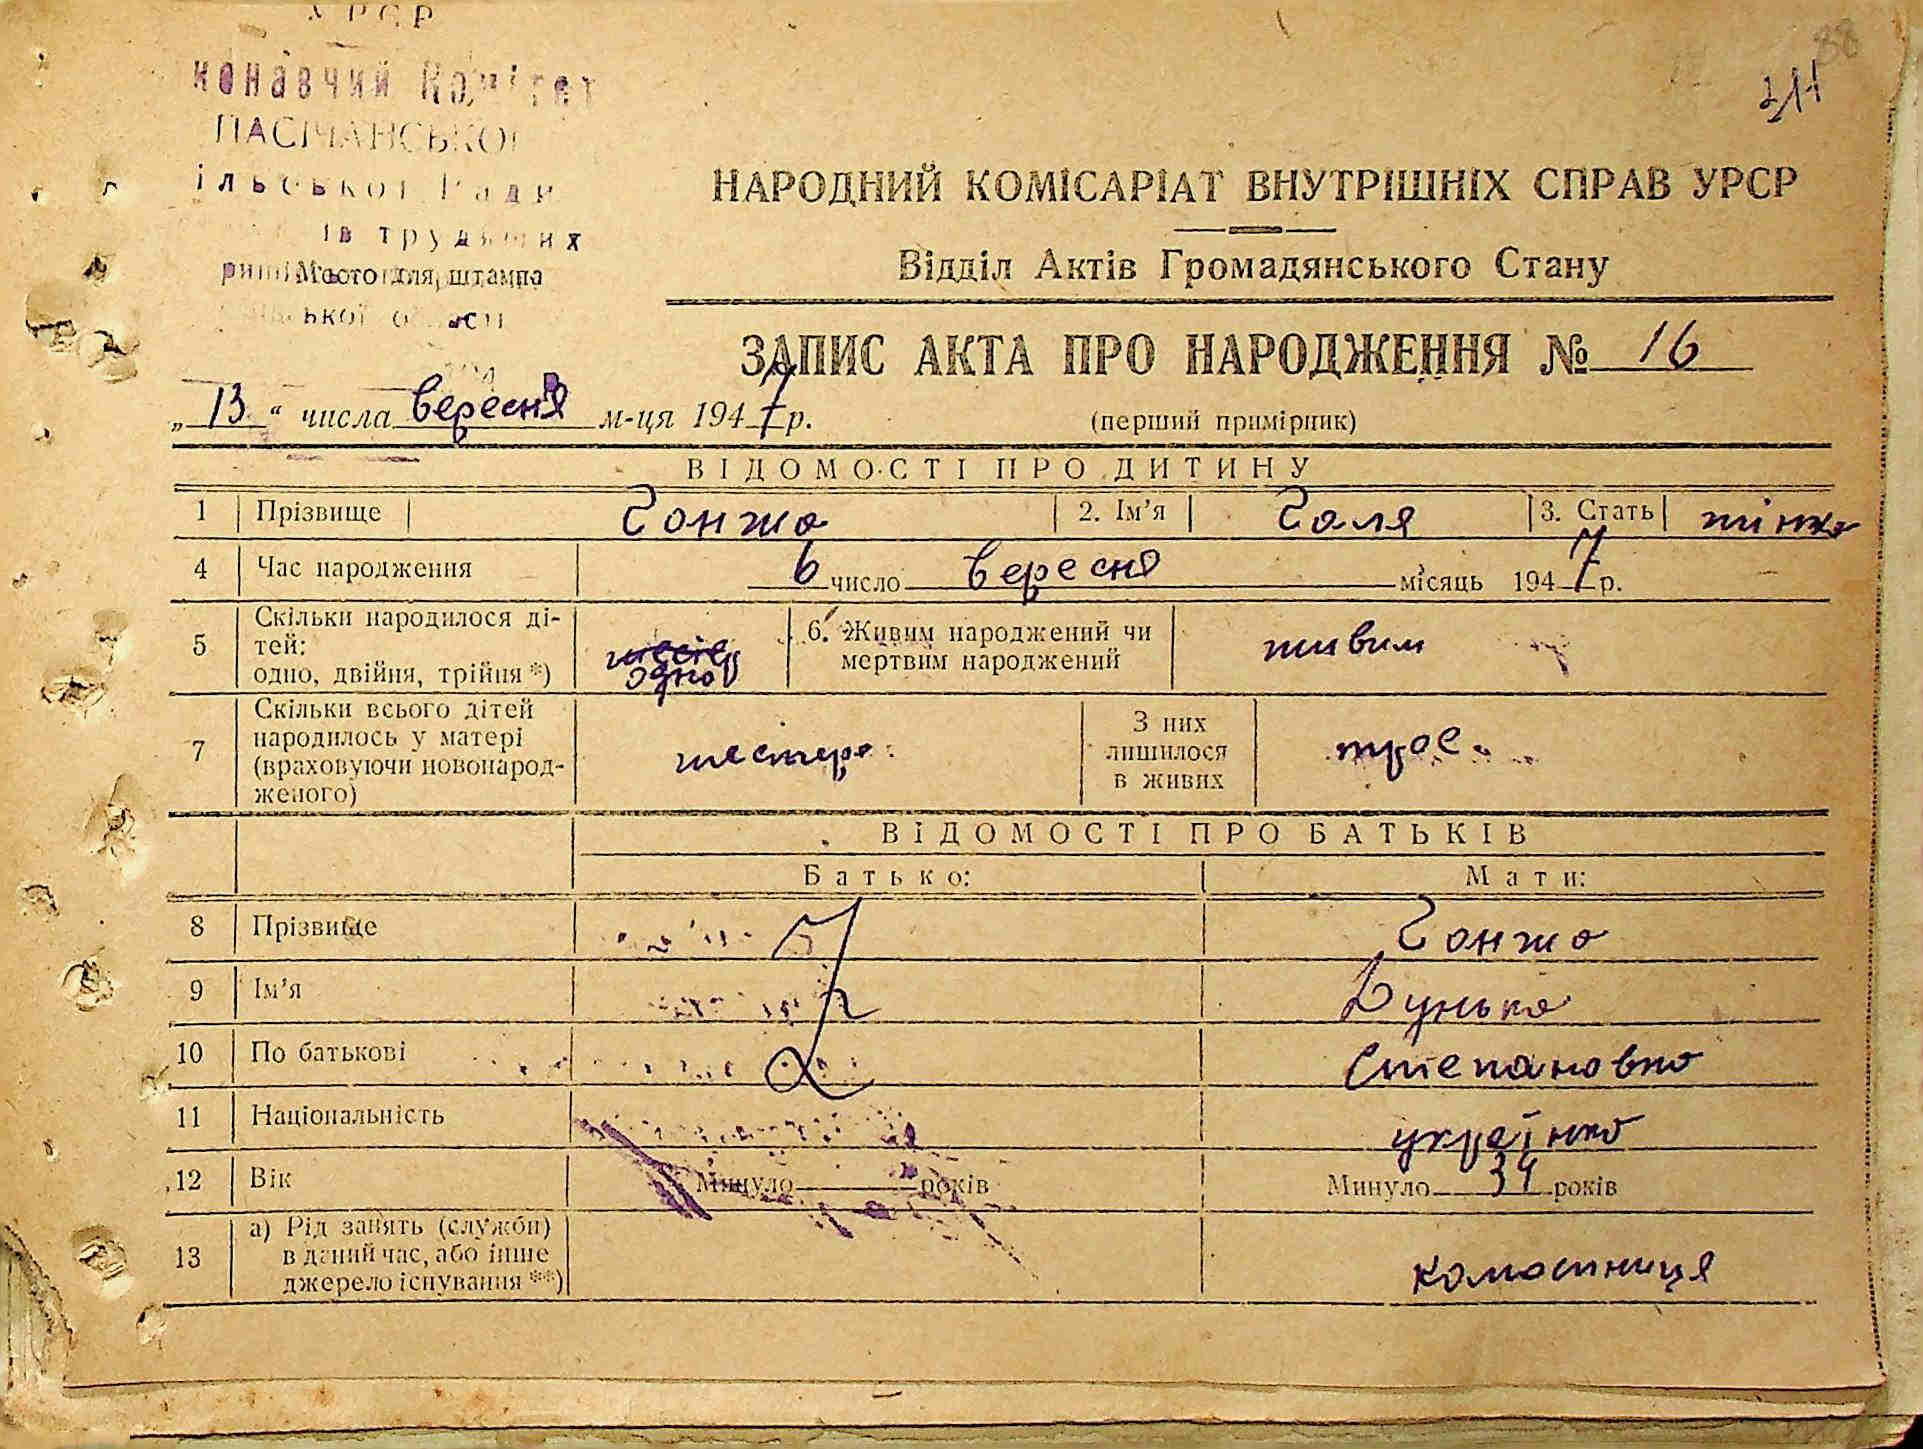 УРСР
конавчий Комітет
ПАСІЧАНСЬКОІ
ільської Ради
ів трудящих
Место для штампа
ської області
88
НАРОДНИЙ КОМІСАРІАТ ВНУТРІШНІХ СПРАВ УРСР
Відділ Актів Громадянського Стану
ЗАПИС АКТА ПРО НАРОДЖЕННЯ № 16
„13“ числа вересня м-ця 1947 р.
(перший примірник)
ВІДОМОСТІ ПРО ДИТИНУ
1 Прізвище Гонжа 2. Ім’я Галя 3. Стать жінка
4 Час народження 6 число вересня місяць 1947 р.
5 Скільки народилося ді-
тей:
одно, двійня, трійня *) одно
6. Живим народжений чи
мертвим народжений живим
7 Скільки всього дітей
народилось у матері
(враховуючи новонарод-
женого) шестеро
З них
лишилося
в живих троє
ВІДОМОСТІ ПРО БАТЬКІВ
Батько: Мати:
8 Прізвище Гонжа
9 Ім’я Дунька
10 По батькові Степановна
11 Національність українка
12 Вік Минуло років Минуло 34 років
13 а) Рід занять (служби)
в даний час, або інше
джерело існування **)